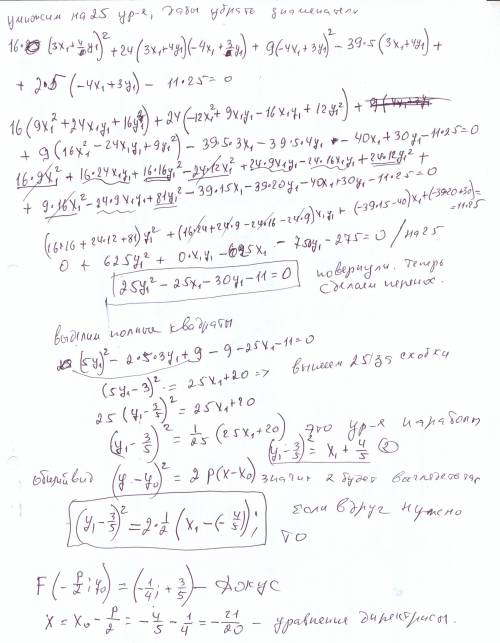 умножим на 25 ур-я, дабы убрать знаменатели
16· (3x₁+4y₁)² + 24(3x₁+4y₁)(-4x₁+3y₁) + 9(-4x₁+3y₁)² - 39·5(3x₁+4y₁) +
+ 2·5(-4x₁+3y₁) - 11·25=0
16(9x₁²+24x₁y₁+16y₁²)+24(-12x₁²+9x₁y₁-16x₁y₁+12y₁²)+
+ 9(16x₁²-24x₁y₁+9y₁²) - 39·5·3x₁-39·5·4y₁ - 40x₁+30y₁-11·25=0
16·9x₁²+16·24x₁y₁+16·16y₁²-24·12x₁²+24·9x₁y₁-24·16x₁y₁+24·12y₁²+
+ 9·16x₁²-24·9x₁y₁+81y₁²-39·15x₁-39·20y₁-40x₁+30y₁-11·25=0
(16·16+24·12+81)y₁²+(16·24+24·9-24·16-24·9)x₁y₁+(-39·15-40)x₁+(-39·20+30)=
=11·25
0 + 625y₁² + 0·x₁y₁ - 625x₁ - 750y₁ - 275=0 / на 25
25y₁² - 25x₁ - 30y₁ - 11 = 0
повернули. Теперь
сделаем перенос.
выделим полные квадраты
(5y₁)² - 2·5·3y₁ + 9 - 9 - 25x₁ - 11=0
(5y₁-3)² = 25x₁+20 => вынесем 25 за скобки
25(y₁-3/5)² = 25x₁+20
(y₁-3/5)² = 1/25 (25x₁+20) это ур-я параболы
(y₁-3/5)² = x₁+4/5 ②
общий вид (y-y₀)² = 2p(x-x₀) значит 2 будет выглядеть так
(y₁-3/5)² = 2·1/2 (x₁-(-4/5)); если вдруг нужно
то
F(-p/2; y₀) = (-1/4; +3/5) - фокус
x = x₀ - p/2 = -4/5 - 1/4 = -21/20 - уравнение директрисы.